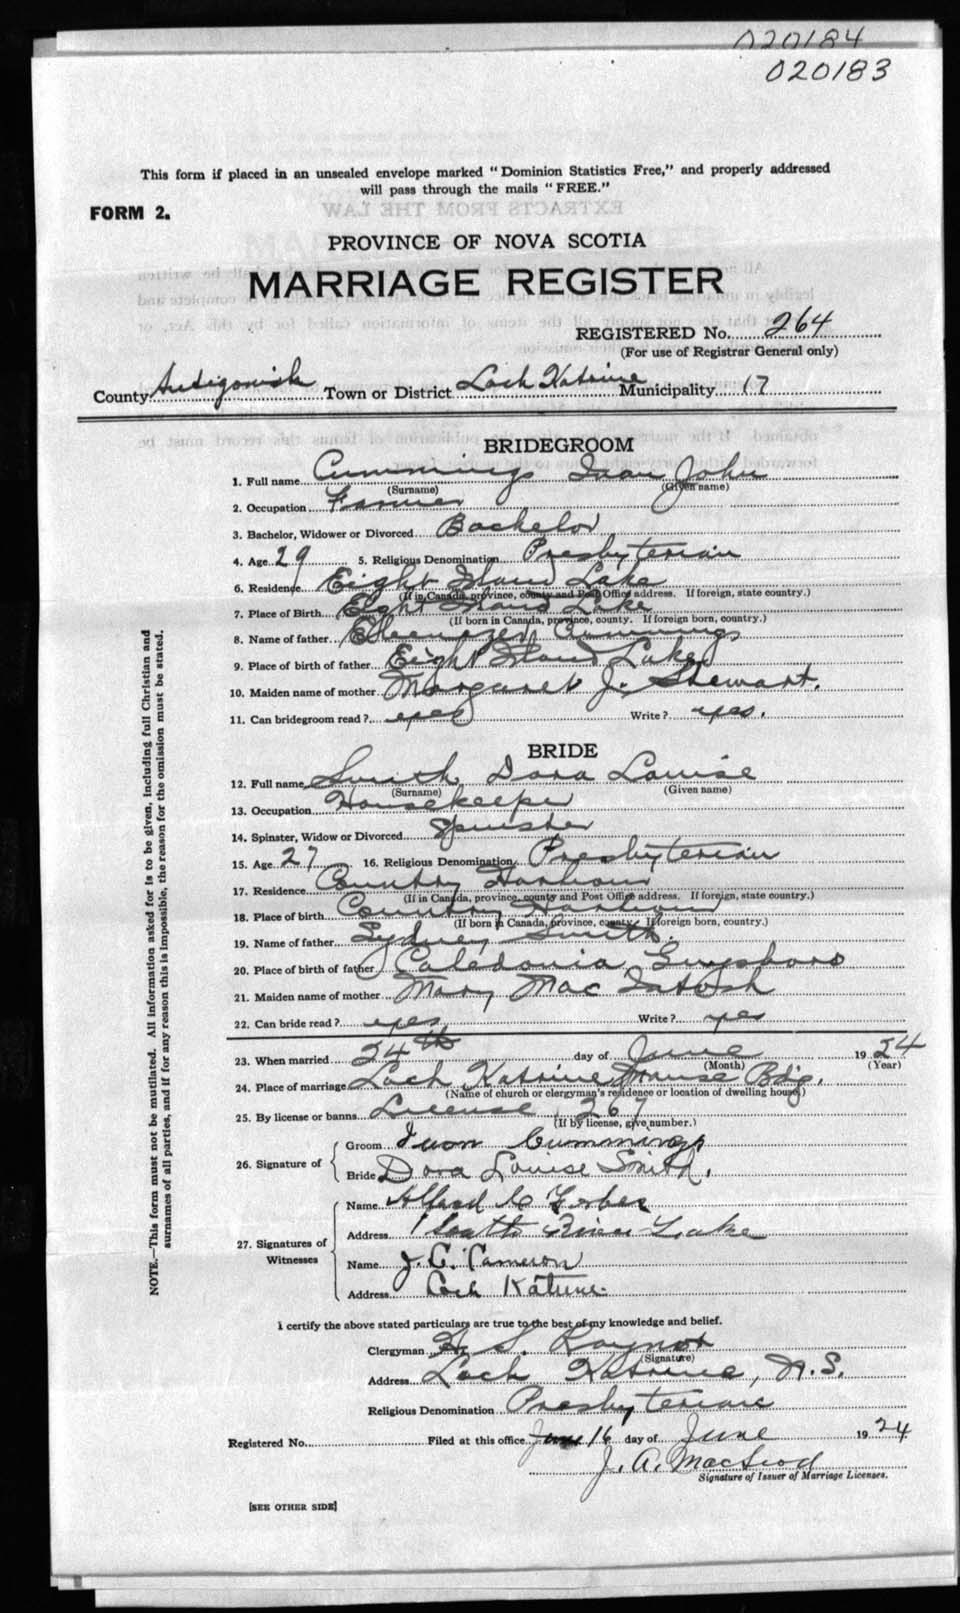 020184
020183
This form if placed in an unsealed envelope marked "Dominion Statistics Free," and properly addressed
will pass through the mails "FREE."
FORM 2.
PROVINCE OF NOVA SCOTIA
MARRIAGE REGISTER
REGISTERED No. 264
(For use of Registrar General only)
County Antigonish Town or District Loch Katrine Municipality 17
BRIDEGROOM
1. Full name Cummings Ivan John
(Surname) (Given name)
2. Occupation Farmer
3. Bachelor, Widower or Divorced Bachelor
4. Age 29 5. Religious Denomination Presbyterian
6. Residence Eight Island Lake
(If in Canada, province, county and Post Office address. If foreign, state country.)
7. Place of Birth Eight Island Lake
(If born in Canada, province, county. If foreign born, country.)
8. Name of father Ebeenezer Cummings
9. Place of birth of father Eight Island Lake
10. Maiden name of mother Margaret J. Stewart.
11. Can bridegroom read? yes Write? yes.
BRIDE
12. Full name Smith Dora Louise
(Surname) (Given name)
13. Occupation Housekeeper
14. Spinster, Widow or Divorced Spinster
15. Age 27 16. Religious Denomination Presbyterian
17. Residence Country Harbour
(If in Canada, province, county and Post Office address. If foreign, state country.)
18. Place of birth Country Harbour
(If born in Canada, province, county. If foreign born, country.)
19. Name of father Sydney Smith.
20. Place of birth of father Caledonia Guysboro
21. Maiden name of mother Mary MacIntosh
22. Can bride read? yes Write? yes
23. When married 24th day of June 1924
(Month) (Year)
24. Place of marriage Loch Katrine Manse Bdg.
(Name of church or clergyman's residence or location of dwelling house)
25. By license or banns License 267
(If by license, give number.)
26. Signature of
Groom Ivan Cummings
Bride Dora Louise Smith.
27. Signatures of Witnesses
Name Alfred C Forbes
Address South River Lake
Name J. C. Cameron
Address Loch Katrine.
I certify the above stated particulars are true to the best of my knowledge and belief.
Clergyman H. S. Raynor
(Signature)
Address Loch Katrine, N.S.
Religious Denomination Presbyterian
Registered No. Filed at this office 16 day of June 1924
J. A. MacLeod
Signature of Issuer of Marriage Licenses.
[SEE OTHER SIDE]
NOTE.—This form must not be mutilated. All information asked for is to be given, including full Christian and
surnames of all parties, and if for any reason this is impossible, the reason for the omission must be stated.